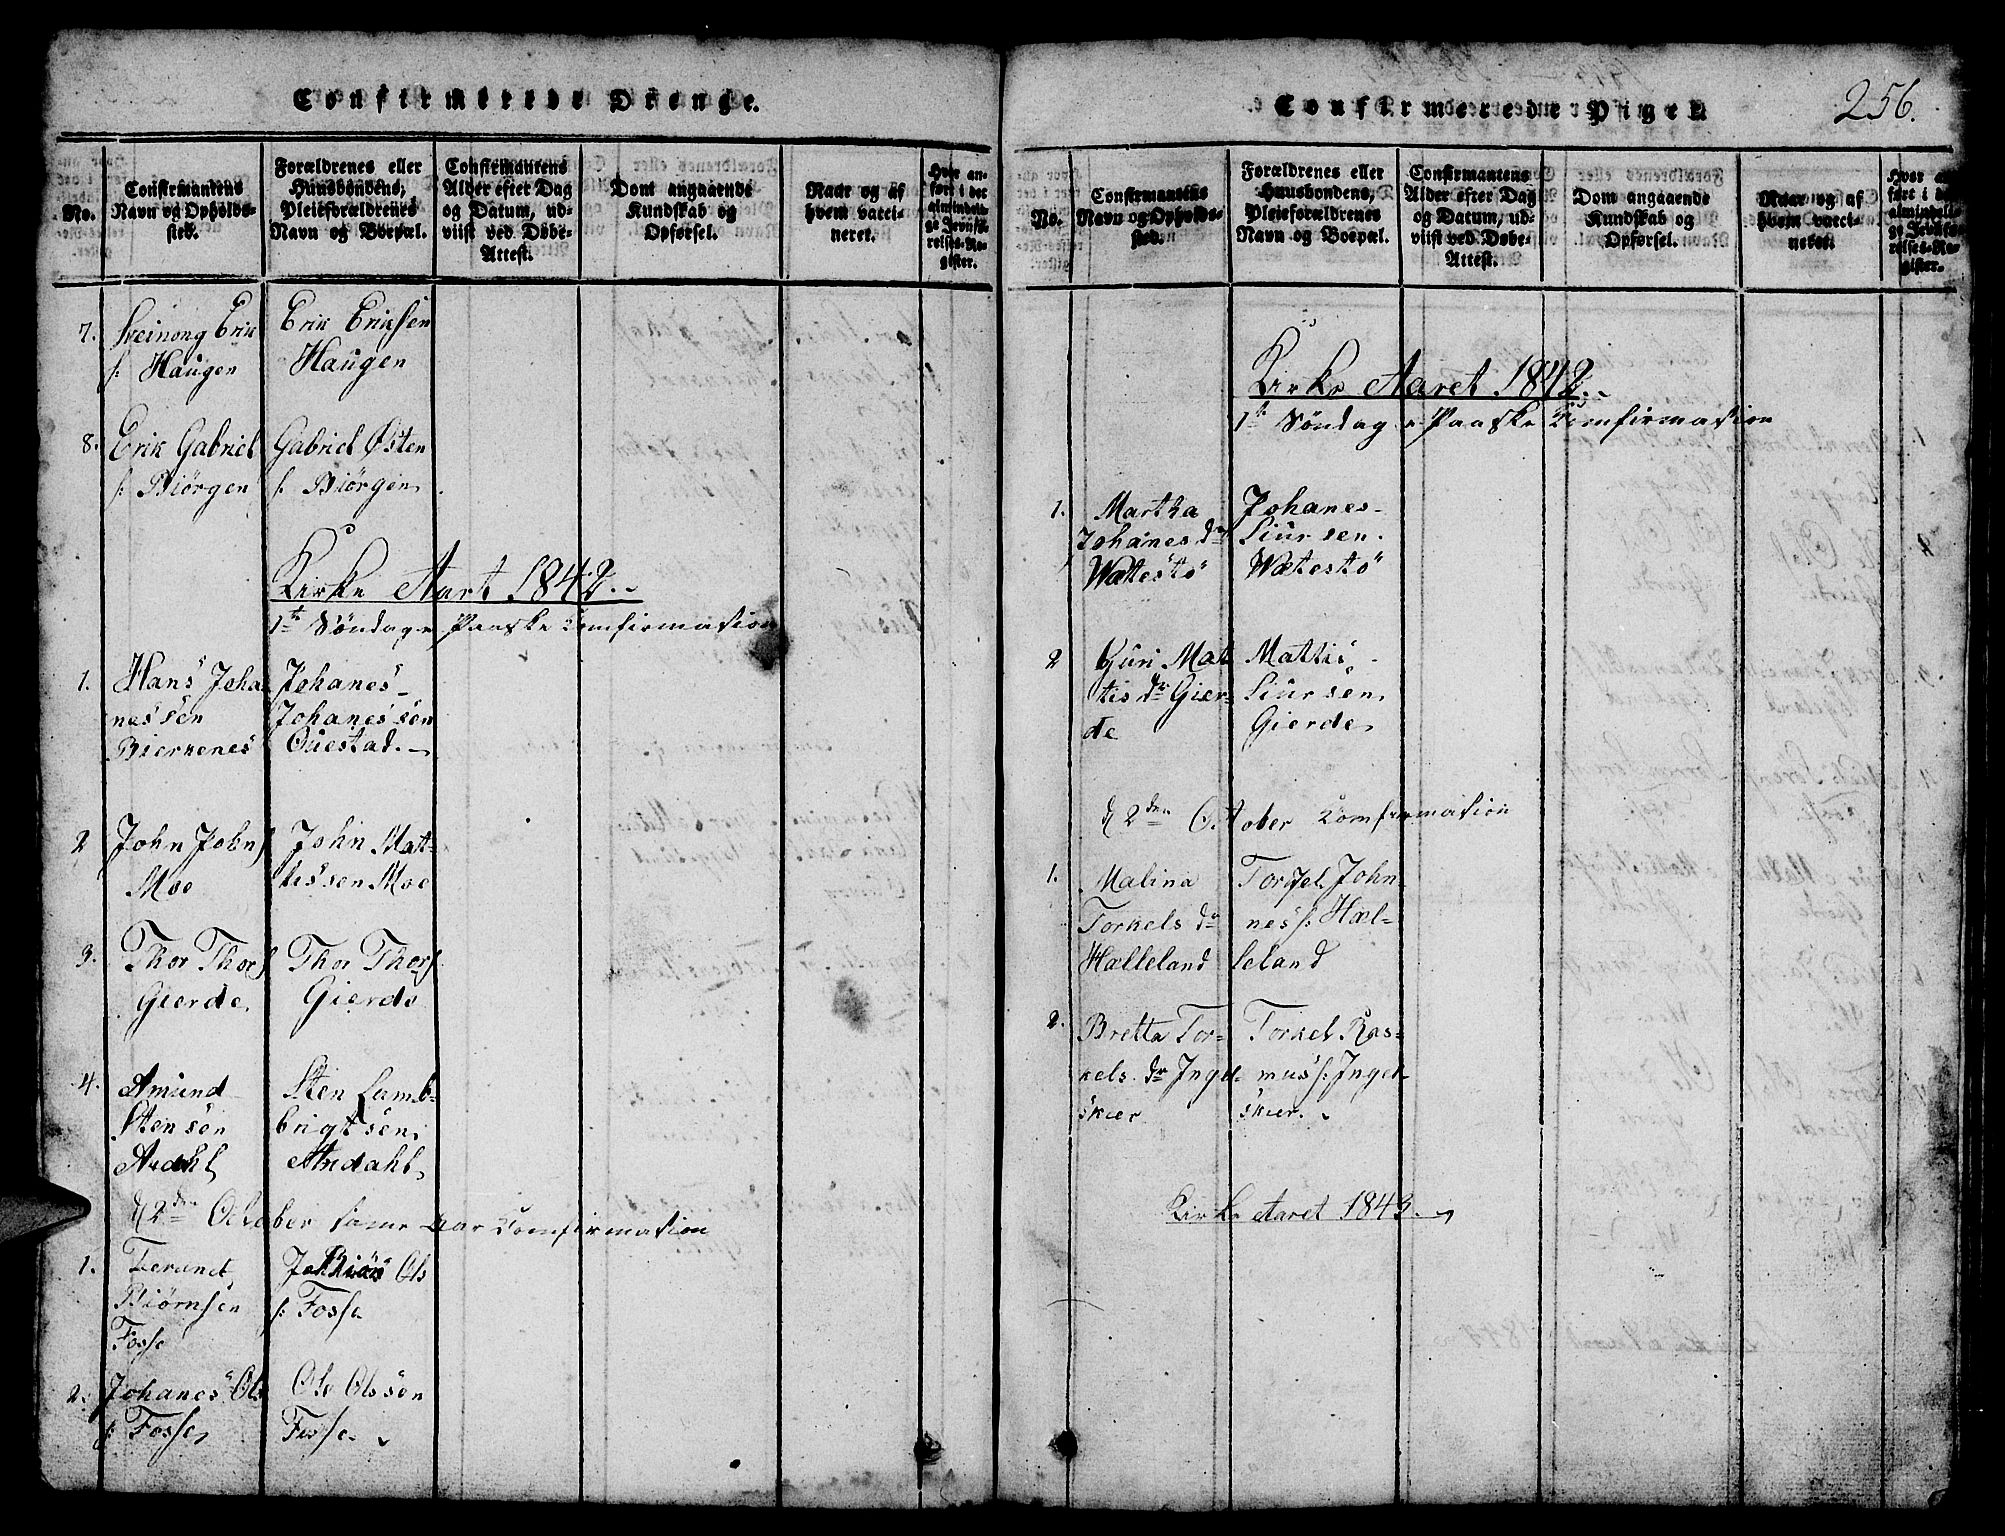 Confirmerede Drenge.
No.
Confirmantens
Navn og Opholds-
sted.
Forældrenes eller
Huusbondens,
Pleieforældrenes
Navn og Boepæl.
Confirmantens
Alder efter Dag
og Datum, ud-
viist ved Døbe-
Attest.
Dom angaaende
Kundskab og
Opførsel.
Naar og af
hvem vacci-
neret.
Hvor an-
ført i det
almindeli-
ge Jevnfø-
relses-Re-
gister.
7. Sveinong Erik Erik Eriksen
s: Haugen Haugen
8. Erik Gabriel Gabriel Østen
s: Biörgen s: Biörgen
Kirke Aart 1842.
1te Söndag e Paaske Comfirmation
1. Hans Joha Johanes
nessen Johanessen
Bierkenes Ouestad.
2 John Johns John Mat-
Moe tissen Moe
3. Thor Thors Thor Thors
Gierde. Gierde
4. Amund Sten Lamb-
Stensen brigtsen.
Ardahl Ardahl
d 2den October samme Aar Comfirmation
1. Terund Ols
Biörnsen s: Fosse
Fosse
2. Johanes Ols Ole Olssen
s: Fosse Fosse.
Confirmerede Piger
256.
No.
Confirmantens
Navn og Opholds-
sted.
Forældrenes eller
Huusbondens,
Pleieforældrenes
Navn og Boepæl.
Confirmantens
Alder efter Dag
og Datum, ud-
viist ved Døbe-
Attest.
Dom angaaende
Kundskab og
Opførsel.
Naar og af
hvem vacci-
neret.
Hvor an-
ført i det
almindeli-
ge Jevnfø-
relses-Re-
gister.
Kirke Aaret 1842.
1te Söndag e Paaske Comfirmation
1. Martha Johanes
Johanes dr Siursen.
Watestö Wætestö
2 Guri Mat Mattis
tis dr Gier- Siursen.
de Gierde.
d 2den October Comfirmation
1. Malina Torkel John
Torkels dr nes s: Hæl-
Hælleland leland
2. Bretta Tor- Torkel Ras-
kels dr Ingel- mus s: Ingel-
skier skier.
Kirke Aaret 1843.